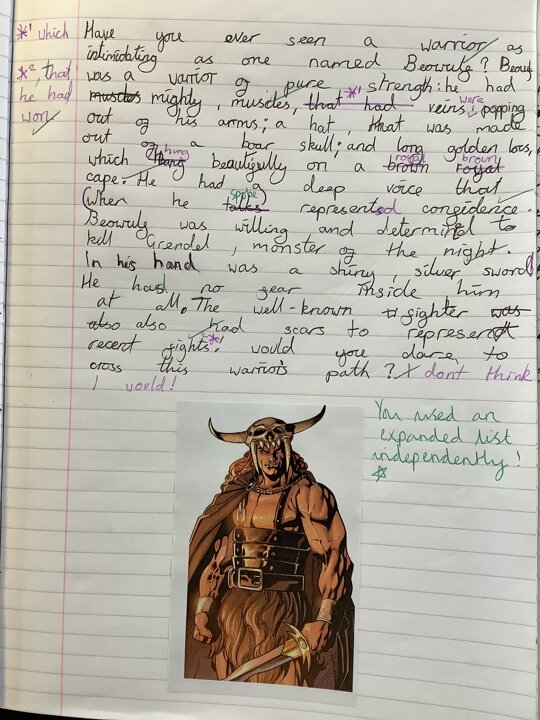 *¹ which
*², that
he had
won.
Have you ever seen a warrior as
intimidating as one named Beowulf? Beowulf
was a warrior of pure strength: he had
muscles mighty, muscles, that had *¹ veins were popping
out of his arms; a hat, that was made
out of a boar skull; and long golden locs,
which hung beautifully on a brown royal royal brown
cape. He had a deep voice that
(when he talks spoke) represented confidence.
Beowulf was willing and determined to
kill Grendel, monster of the night.
In his hand was a shiny, silver sword.
He had no fear inside him
at all. The well-known fighter was
also also had scars to represent
recent fights *². Would you dare to
cross this warrior's path? I don't think
I would!
You used an
expanded list
independently!